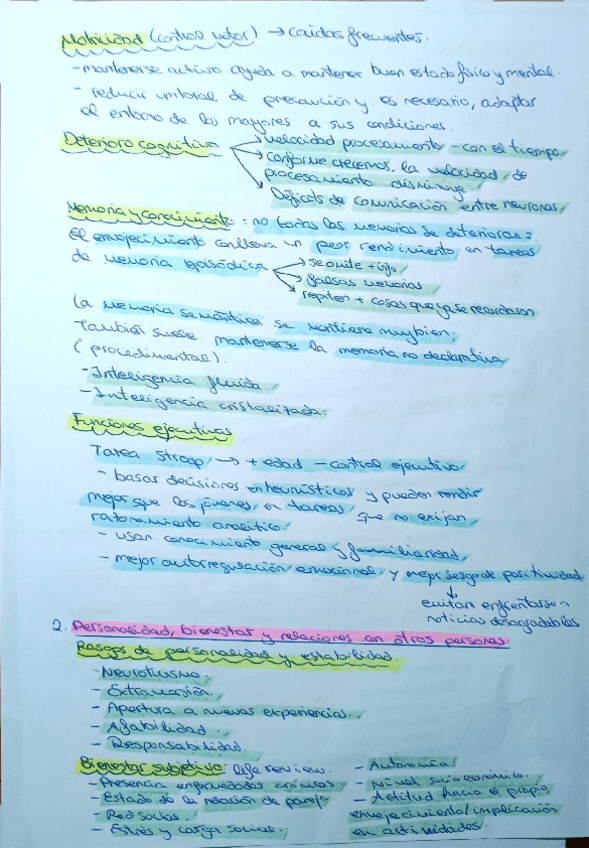 Motricidad (control motor) → caídas frecuentes.
- mantenerse activo ayuda a mantener buen estado físico y mental.
- reducir umbral de precaución y es necesario, adaptar
el entorno de los mayores a sus condiciones.
Deterioro cognitivo → velocidad procesamiento - con el tiempo
→ conforme crecemos la velocidad de
procesamiento disminuye
→ Déficits de comunicación entre neuronas
Memoria y conocimiento: no todas las memorias se deterioran:
El envejecimiento conlleva un peor rendimiento, en tareas
de memoria episódica → se omite + info
→ falsas memorias
→ repiten + cosas que ya se recordaron
La memoria semántica se mantiene muy bien.
También suele mantenerse la memoria no declarativa
(procedimental).
- Inteligencia fluida.
- Inteligencia cristalizada.
Funciones ejecutivas
Tarea Stroop → + edad - control ejecutivo
- basar decisiones en heurísticos y pueden rendir
mejor que los jóvenes, en tareas, que no exijan
razonamiento analítico.
- usan conocimiento general y familiaridad,
- mejor autorregulación emocional, y mejor sesgo de positividad
↓
evitan enfrentarse a
noticias desagradables
2. Personalidad, bienestar y relaciones con otras personas.
Rasgos de personalidad y estabilidad.
- Neuroticismo.
- Extraversión.
- Apertura a nuevas experiencias.
- Afabilidad.
- Responsabilidad.
Bienestar subjetivo: life review.
- Presencia enfermedades crónicas
- Estado de la relación de pareja
- Red social.
- Estrés y carga social.
- Autonomía
- Nivel socioeconómico.
- Actitud hacia el propio
envejecimiento/implicación
en actividades.